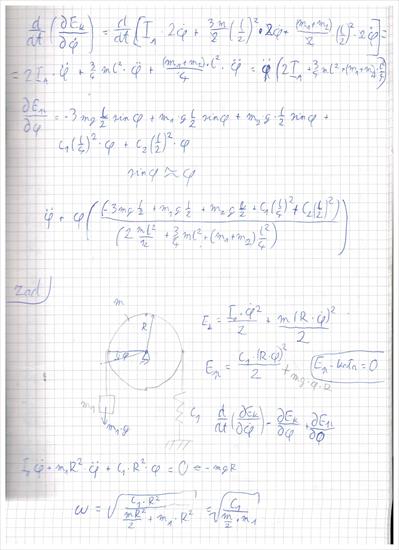 d/dt (∂Ek/∂φ̇) = d/dt [I₁ · 2φ̇ + 3m/2 (l/2)² · 2φ̇ + (m₁+m₂)/2 (l/2)² · 2φ̇] =
= 2I₁ · φ̈ + 3/4 ml² · φ̈ + (m₁+m₂)/4 · l² · φ̈ = φ̈ (2I₁ + 3/4 ml² + (m₁+m₂) l²/4)
∂Eπ/∂φ = -3mg l/2 sinφ + m₁ · g l/2 sinφ + m₂ g · l/2 sinφ +
c₁(l/4)² · φ + c₂(l/2)² · φ
sinφ ≈ φ
φ̈ + φ ((-3mg l/2 + m₁g l/2 + m₂g l/2 + c₁(l/4)² + c₂(l/2)²) / (2 ml²/12 + 3/4 ml² + (m₁+m₂) l²/4))
zad
m
R
φ
m₁
m₁·g
c₁
Ek = I₀·φ̇²/2 + m(R·φ̇)²/2
Eπ = c₁·(R·φ)²/2 + mg·φ·R
= 0
d/dt (∂Ek/∂φ̇) - ∂Ek/∂φ + ∂Eπ/∂φ
I₀φ̈ + m₁R²·φ̈ + c₁·R²·φ = 0 - mgR
ω = √(c₁·R² / (mR²/2 + m₁·R²)) = √(c₁ / (m/2 + m₁))